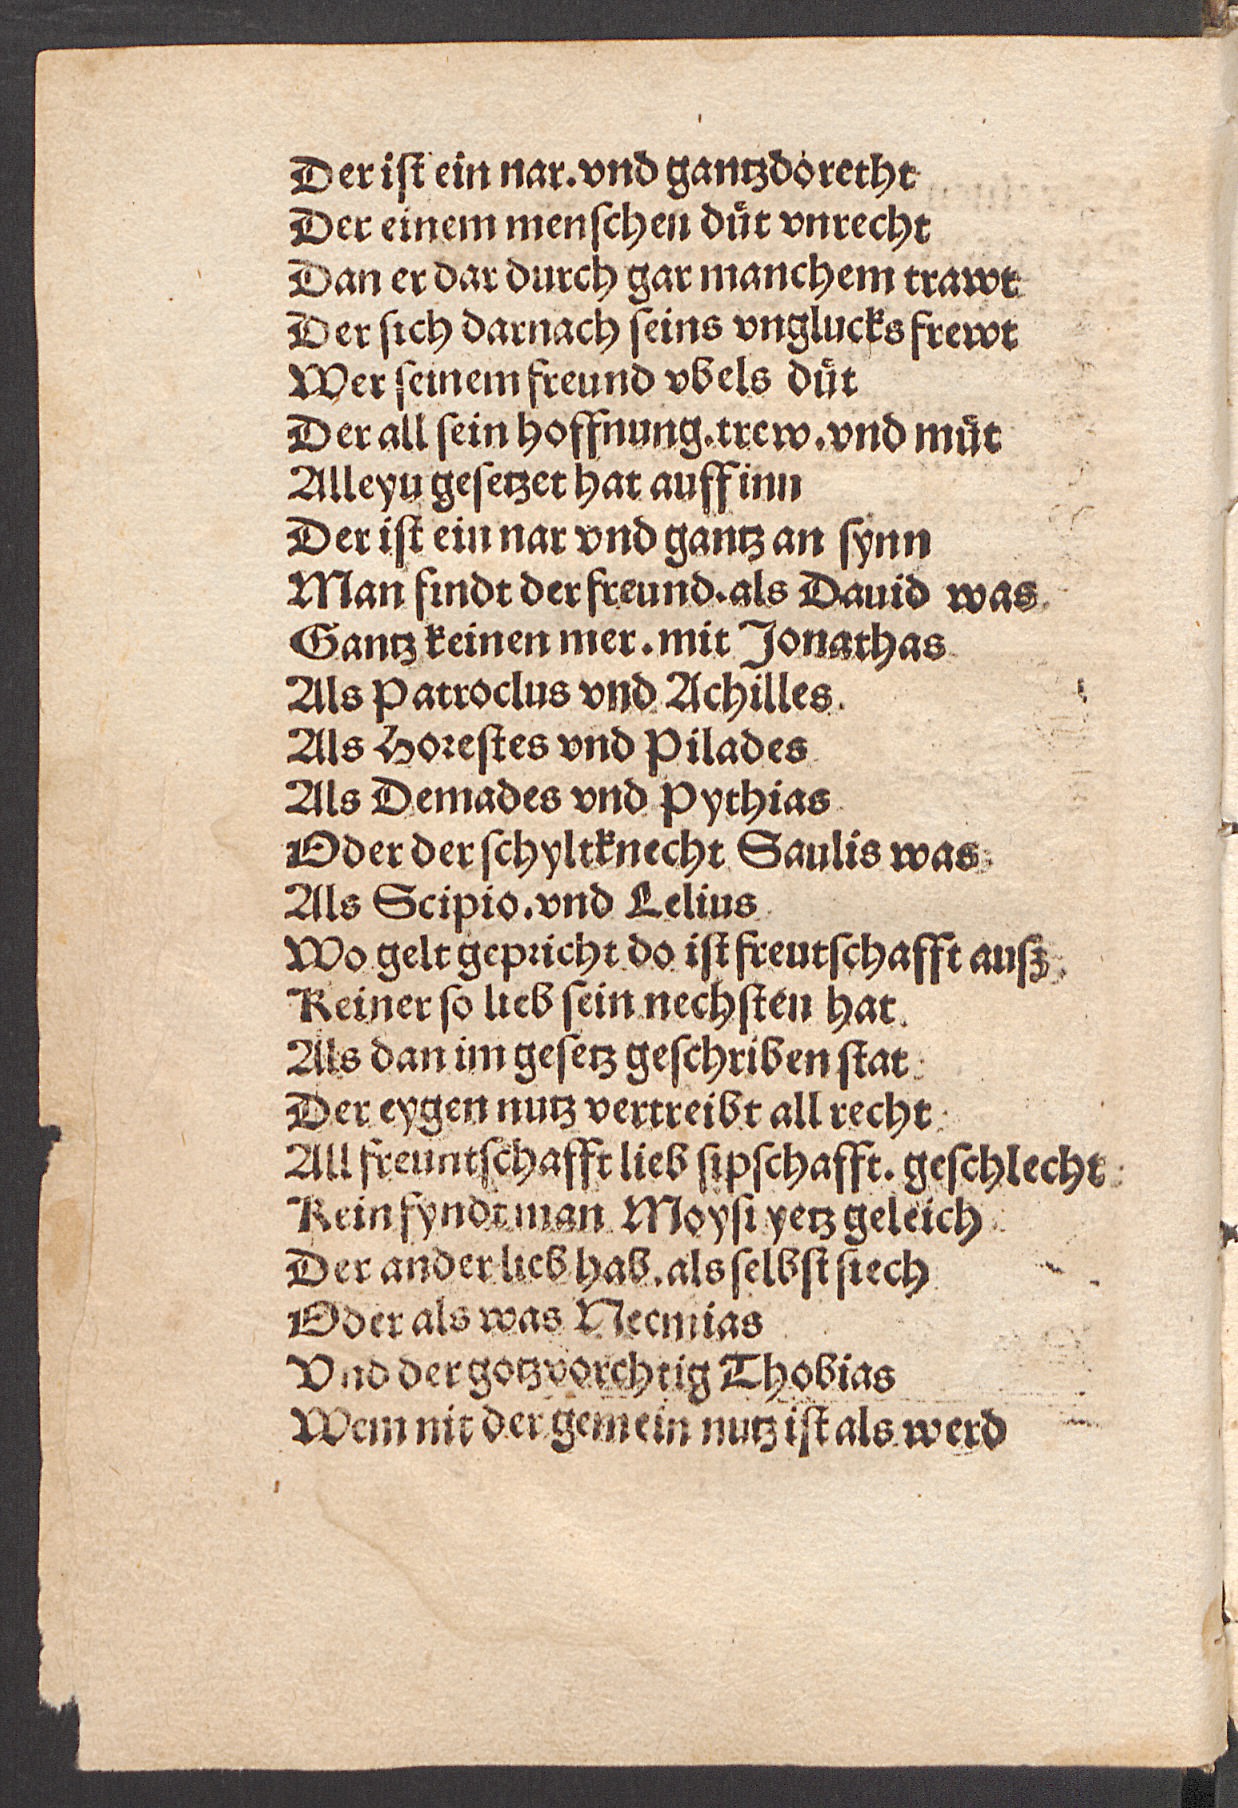 Der iſt ein nar. vnd gantz doͤretht
Der einem menſchen duͤt vnrecht
Dan er dar durch gar manchem trawt
Der ſich darnach ſeins vnglucks frewt
Wer ſeinem freund vbels duͤt
Der all ſein hoffnung. trew. vnd muͤt
Alleyu geſetzet hat auff inn
Der iſt ein nar vnd gantz an ſynn
Man findt der freund. als Dauid was
Gantz keinen mer. mit Jonathas
Als Patroclus vnd Achilles.
Als Horeſtes vnd Pilades
Als Demades vnd Pythias
Oder der ſchyltknecht Saulis was
Als Scipio. vnd Lelius
Wo gelt gepricht do iſt freutſchafft auſz
Keiner ſo lieb ſein nechſten hat
Als dan im geſetz geſchriben ſtat
Der eygen nutz vertreibt all recht
All freuntſchafft lieb ſipſchafft. geſchlecht
Kein fyndt man Moyſi yetz geleich
Der ander lieb hab. als ſelbſt ſiech
Oder als was Neemias
Vnd der gotzvorchtig Thobias
Wem nit der gemein nutz iſt als werd